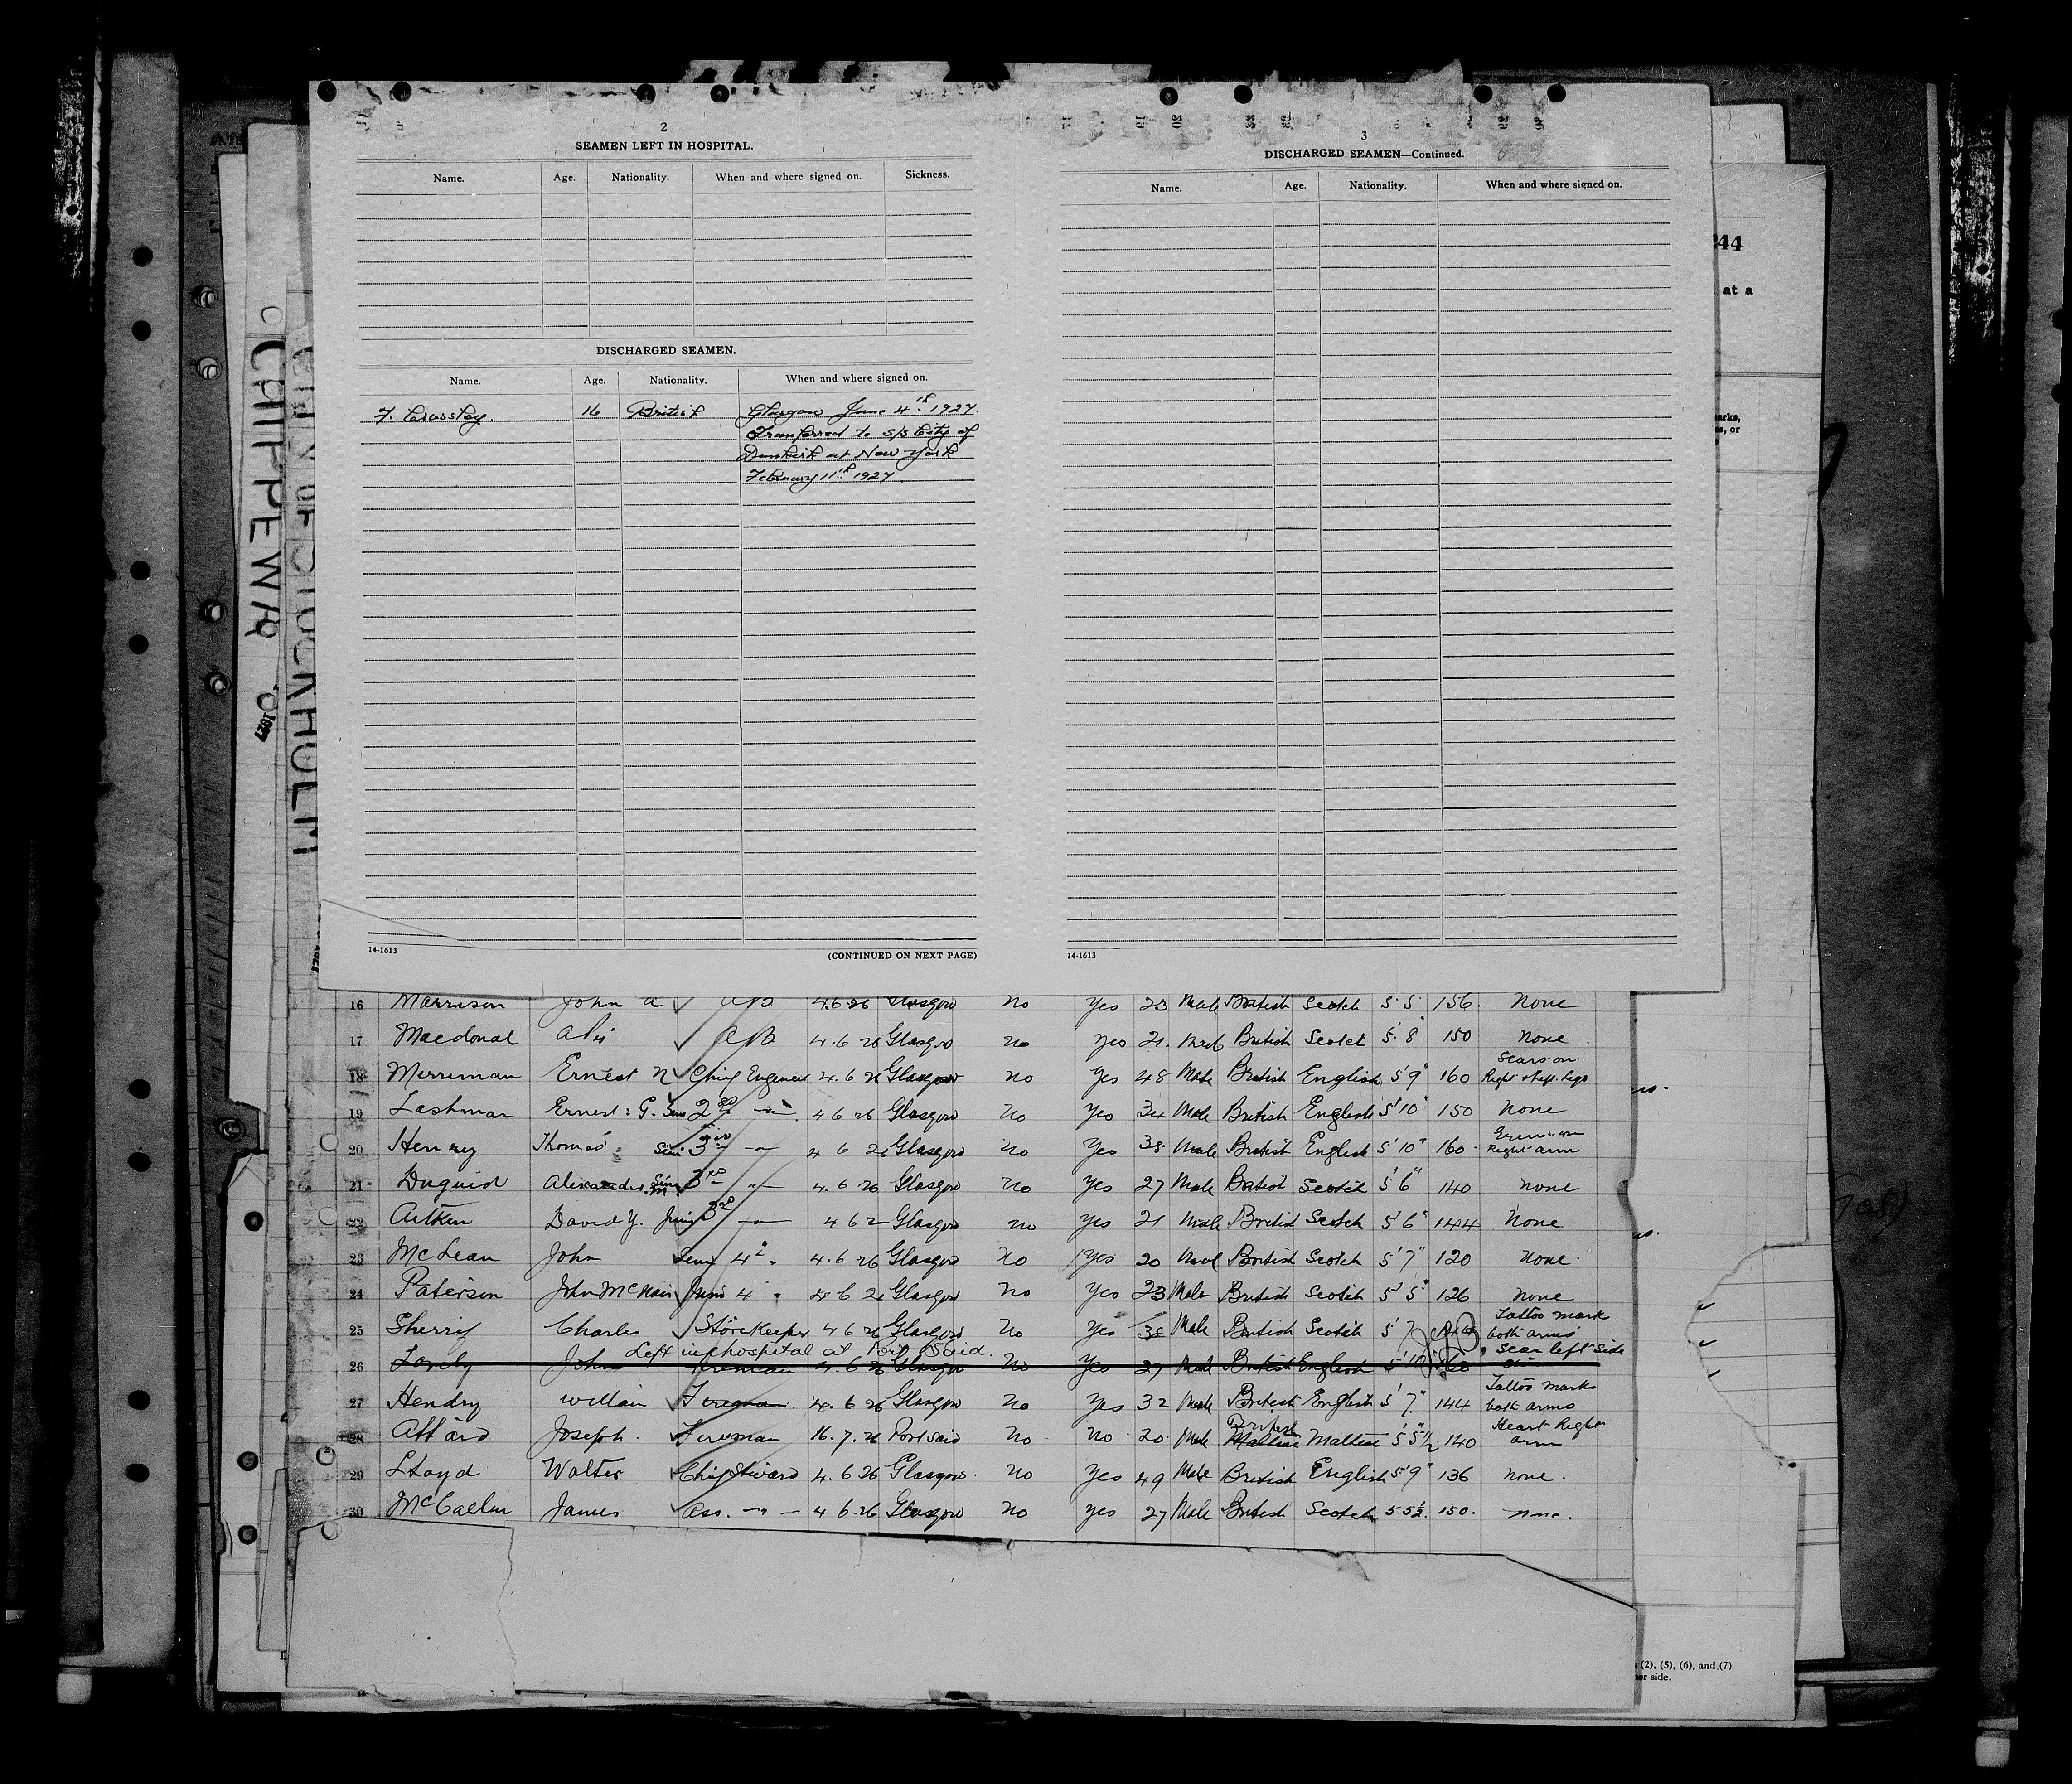 2
SEAMEN LEFT IN HOSPITAL.
Name. Age. Nationality. When and where signed on. Sickness.
DISCHARGED SEAMEN.
Name. Age. Nationality. When and where signed on.
F. Crossley. 16 British Glasgow June 4th 1927.
Transferred to S/S City of
Dunkirk at New York
February 11th 1927.
14-1613
(CONTINUED ON NEXT PAGE)
3
DISCHARGED SEAMEN—Continued.
Name. Age. Nationality. When and where signed on.
14-1613
16 Marrison John A AB 4.6.26 Glasgow No Yes 23 Male British Scotch 5'5" 156. None
17 Macdonal AB 4.6 26 Glasgow No Yes 21. British Scotch 5'8" 150 None
18 Merriman Ernest N Chief Engineer 4.6 26 Glasgow No Yes 48 Male British English 5'9" 160 Scars on
Right & left legs
19 Lashman Ernest: G. 2nd -"- 4.6 26 Glasgow No Yes 34 Male British English 5'10" 150 None
20 Henry Thomas 3rd -"- 4 6 26 Glasgow No Yes 38 Male British English 5'10" 160
Right arm
21 Duguid Alexander 3rd -"- 4.6 26 Glasgow No Yes 27 Male British Scotch 5'6" 140 None
22 Aitken David Y. 3rd -"- 4 6 2 Glasgow No Yes 21 Male British Scotch 5'6" 144 None
23 McLean John 4th " 4.6 26 Glasgow No Yes 20 Male British Scotch 5'7" 120 None.
24 Paterson John McNair 4 " 4 6 26 Glasgow No Yes 23 Male British Scotch 5'5" 126 None
25 Sherrif Charles Storekeeper 4 6 26 Glasgow No Yes 38 Male British Scotch 5'7 Tattoo mark
both arms
Left in hospital at Port Said.
26 Lovely John Fireman 4.6 26 Glasgow No Yes 37 Male British English 5'10" 160 Scar left side
27 Hendry William Fireman. 4.6 26 Glasgow No Yes 32 Male British English 5'7" 144 Tattoo marks
both arms
28 Attard Joseph. Fireman 16.7.26 Port Said No No 20 Male British Maltese Maltese 5'5"1/2 140 Heart Right
arm
29 Lloyd Walter Chief Steward 4.6 26 Glasgow. No Yes 49 Male British English 5'9" 136 None.
30 McCallum James Ass. -"- 4 6.26 Glasgow No Yes 27 Male British Scotch 5 5½. 150. None.
CHIPPEWA
1927
CITY OF STOCKHOLM
244
at a
(2), (5), (6), and (7)